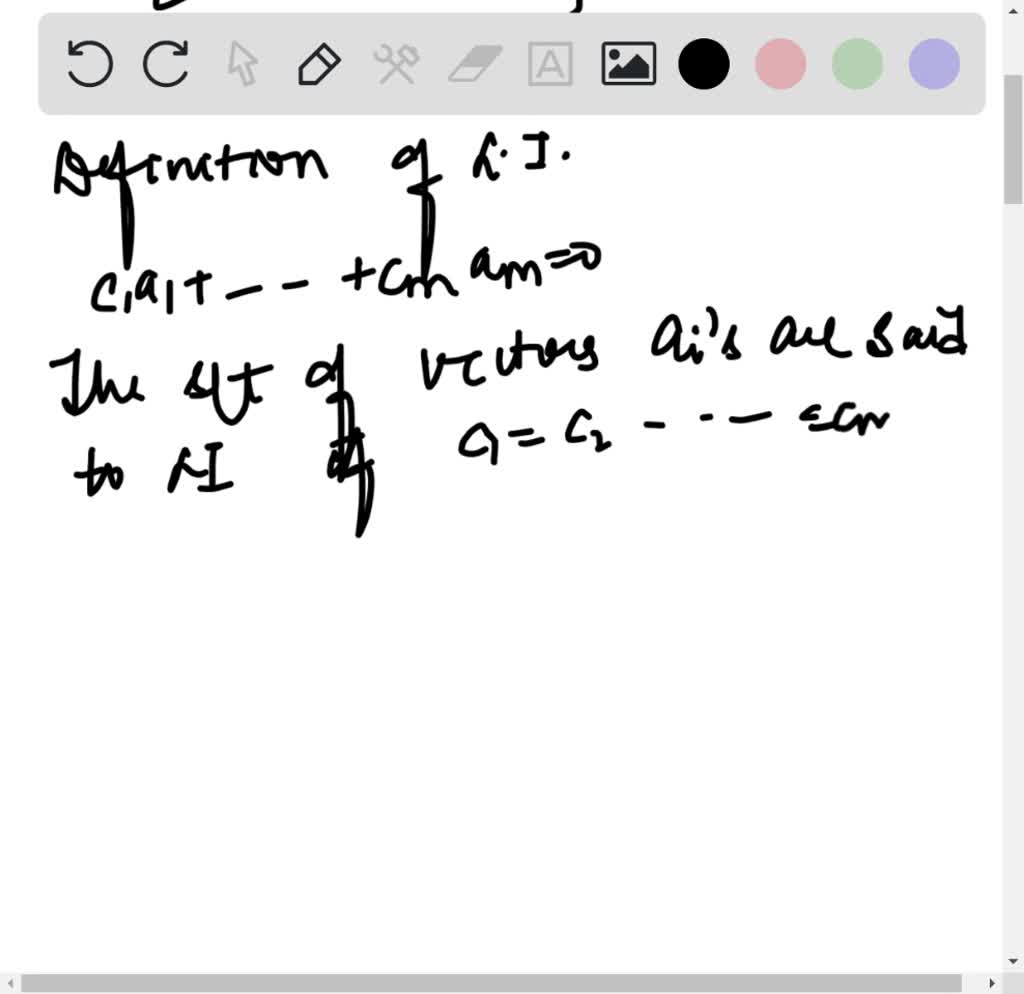 Definition of L.I.
c₁a₁+ - - - +cm am=0
The set of vectors ai's are said
to LI if c₁ = c₂ - - - =cm